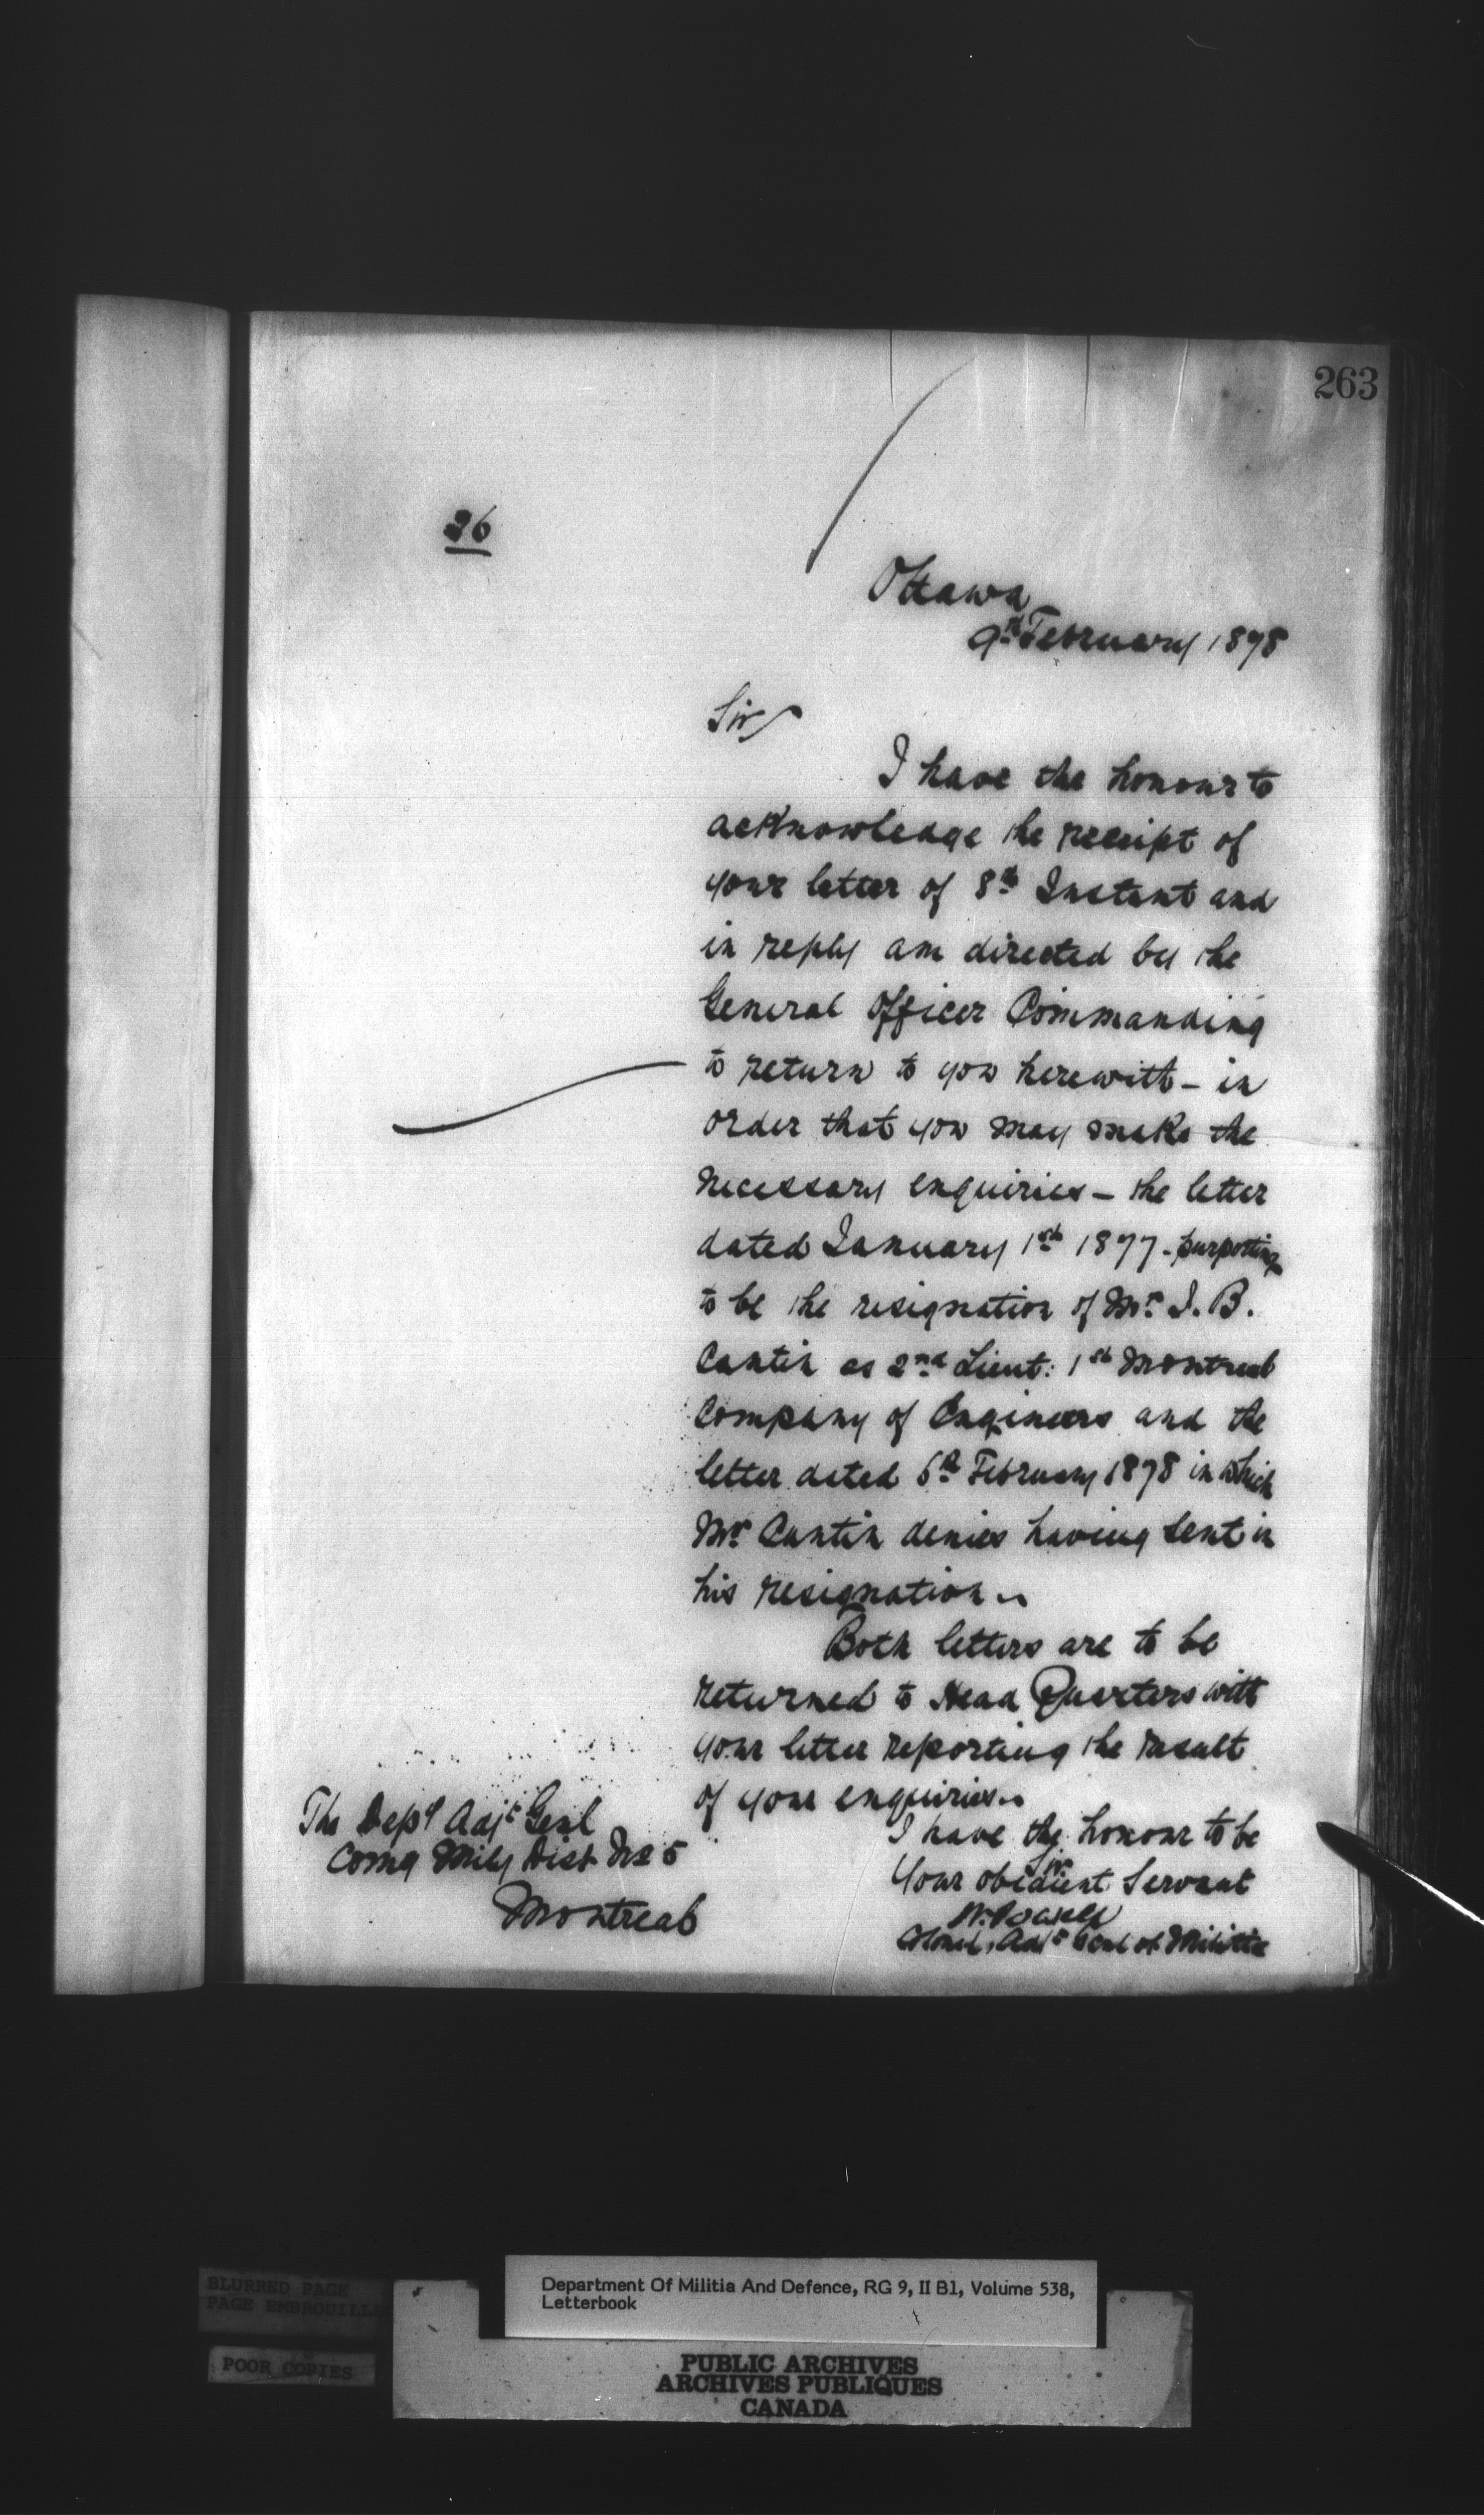 263
26
Ottawa
9th February 1878
Sir
I have the honour to
acknowledge the receipt of
your letter of 8th Instant and
in reply am directed by the
General Officer Commanding
to return to you herewith – in
order that you may make the
necessary enquiries – the letter
dated January 1st 1877 - purporting
to be the resignation of Mr. J. B.
Cantin as 2nd Lieut: 1st Montreal
Company of Engineers and the
letter dated 6th February 1878 in which
Mr. Cantin denies having sent in
his resignation.
Both letters are to be
returned to Head Quarters with
your letter reporting the result
of your enquiries.
I have the honour to be
Sir
Your obedient Servant
W. Powell
Colonel, Adjt Genl of Militia
The Depy Adjt Genl
Comg Mily Dist No 5
Montreal
BLURRED PAGE
PAGE EMBROUILLE
POOR COPIES
Department Of Militia And Defence, RG 9, II B1, Volume 538,
Letterbook
PUBLIC ARCHIVES
ARCHIVES PUBLIQUES
CANADA